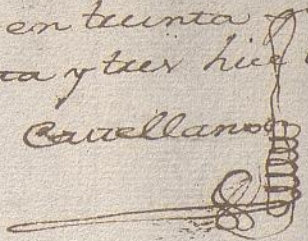 en treinta
ta y tres
Castellanos